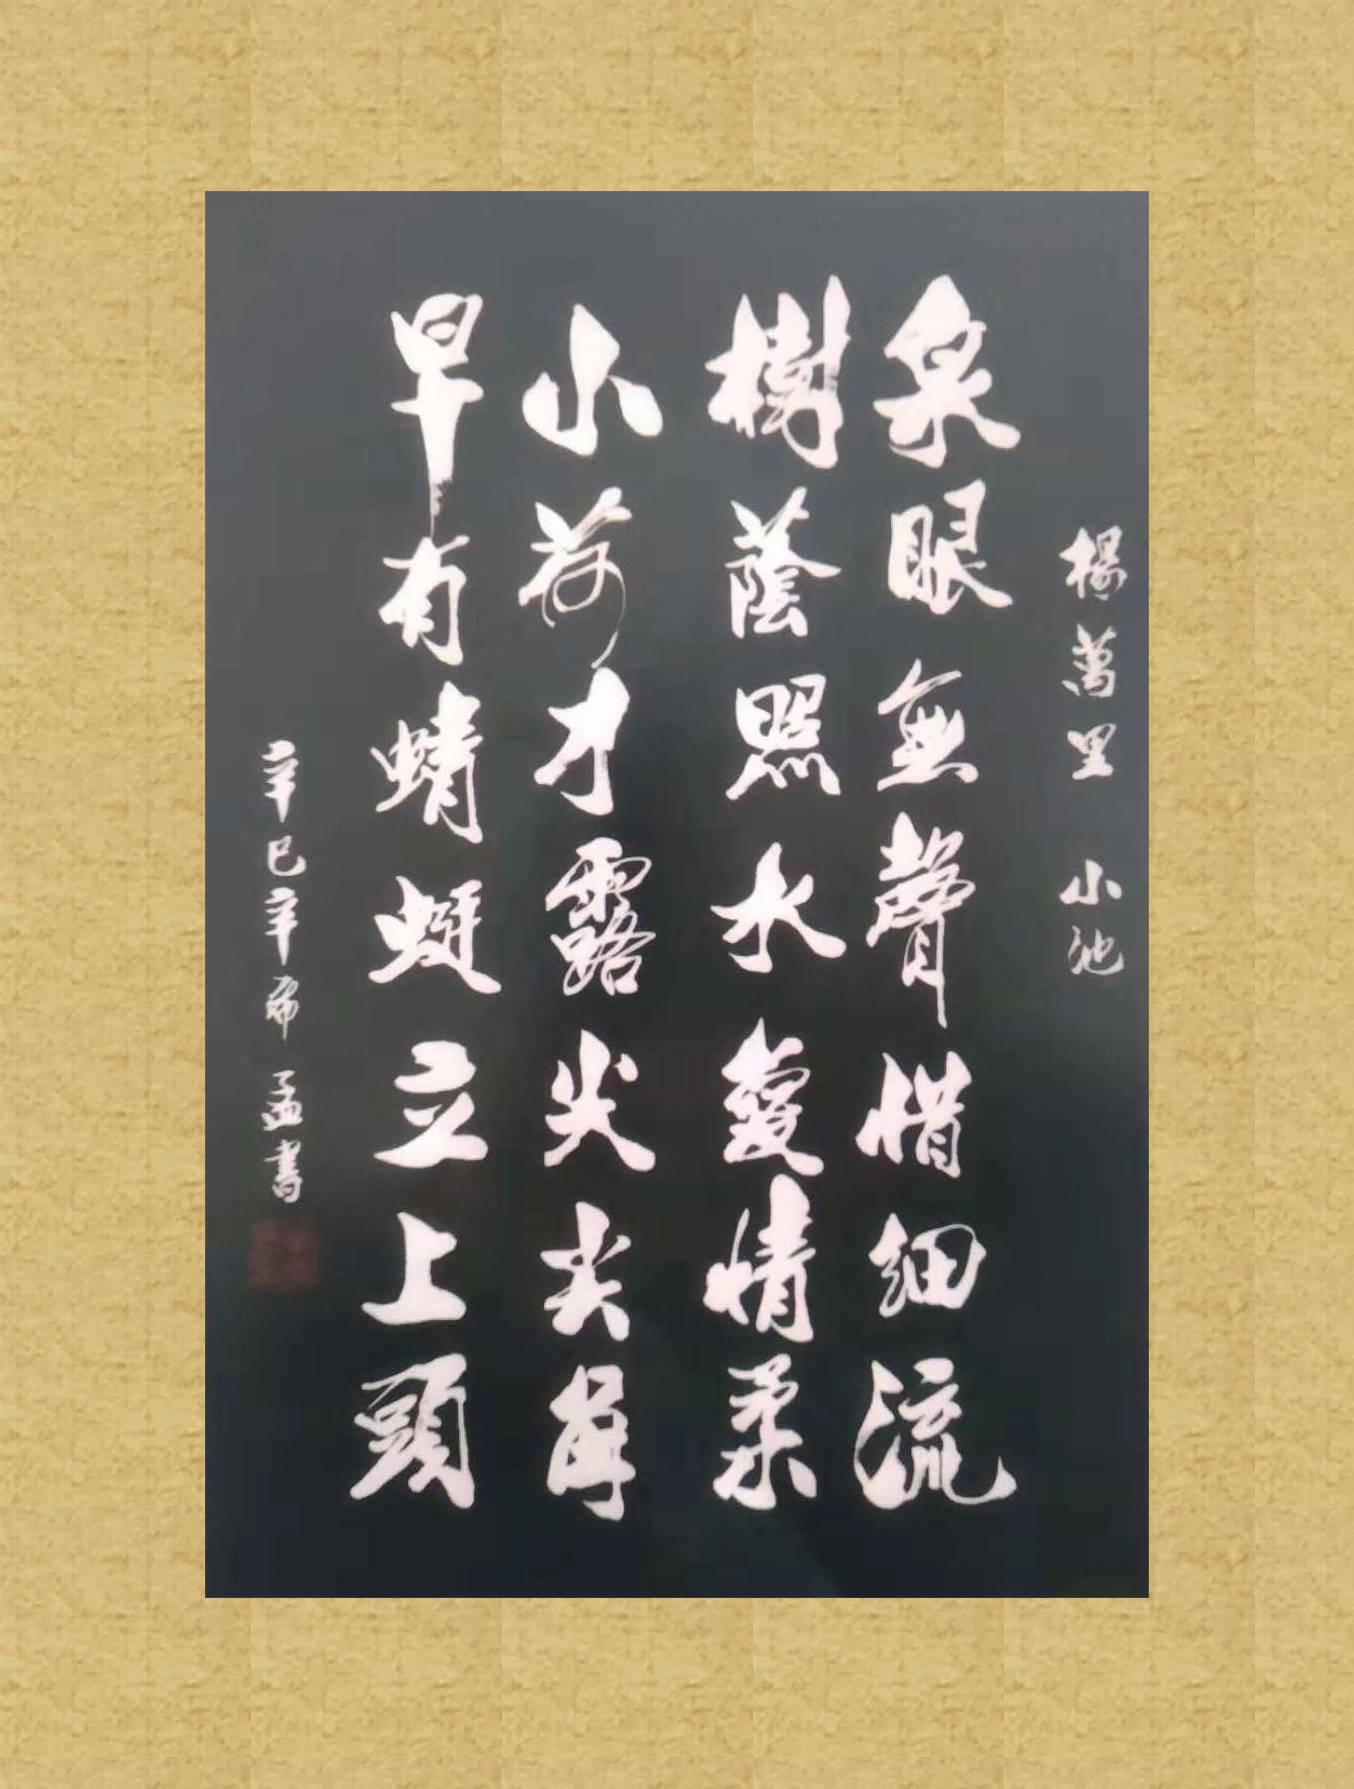 楊萬里 小池
泉眼無聲惜細流
樹蔭照水愛情柔
小荷才露尖尖角
早有蜻蜓立上頭
辛巳辛希孟書